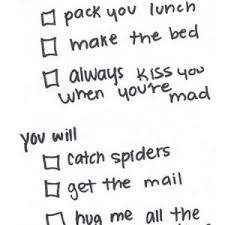 pack you lunch
make the bed
always kiss you
when you're mad
you will
catch spiders
get the mail
hug me all the